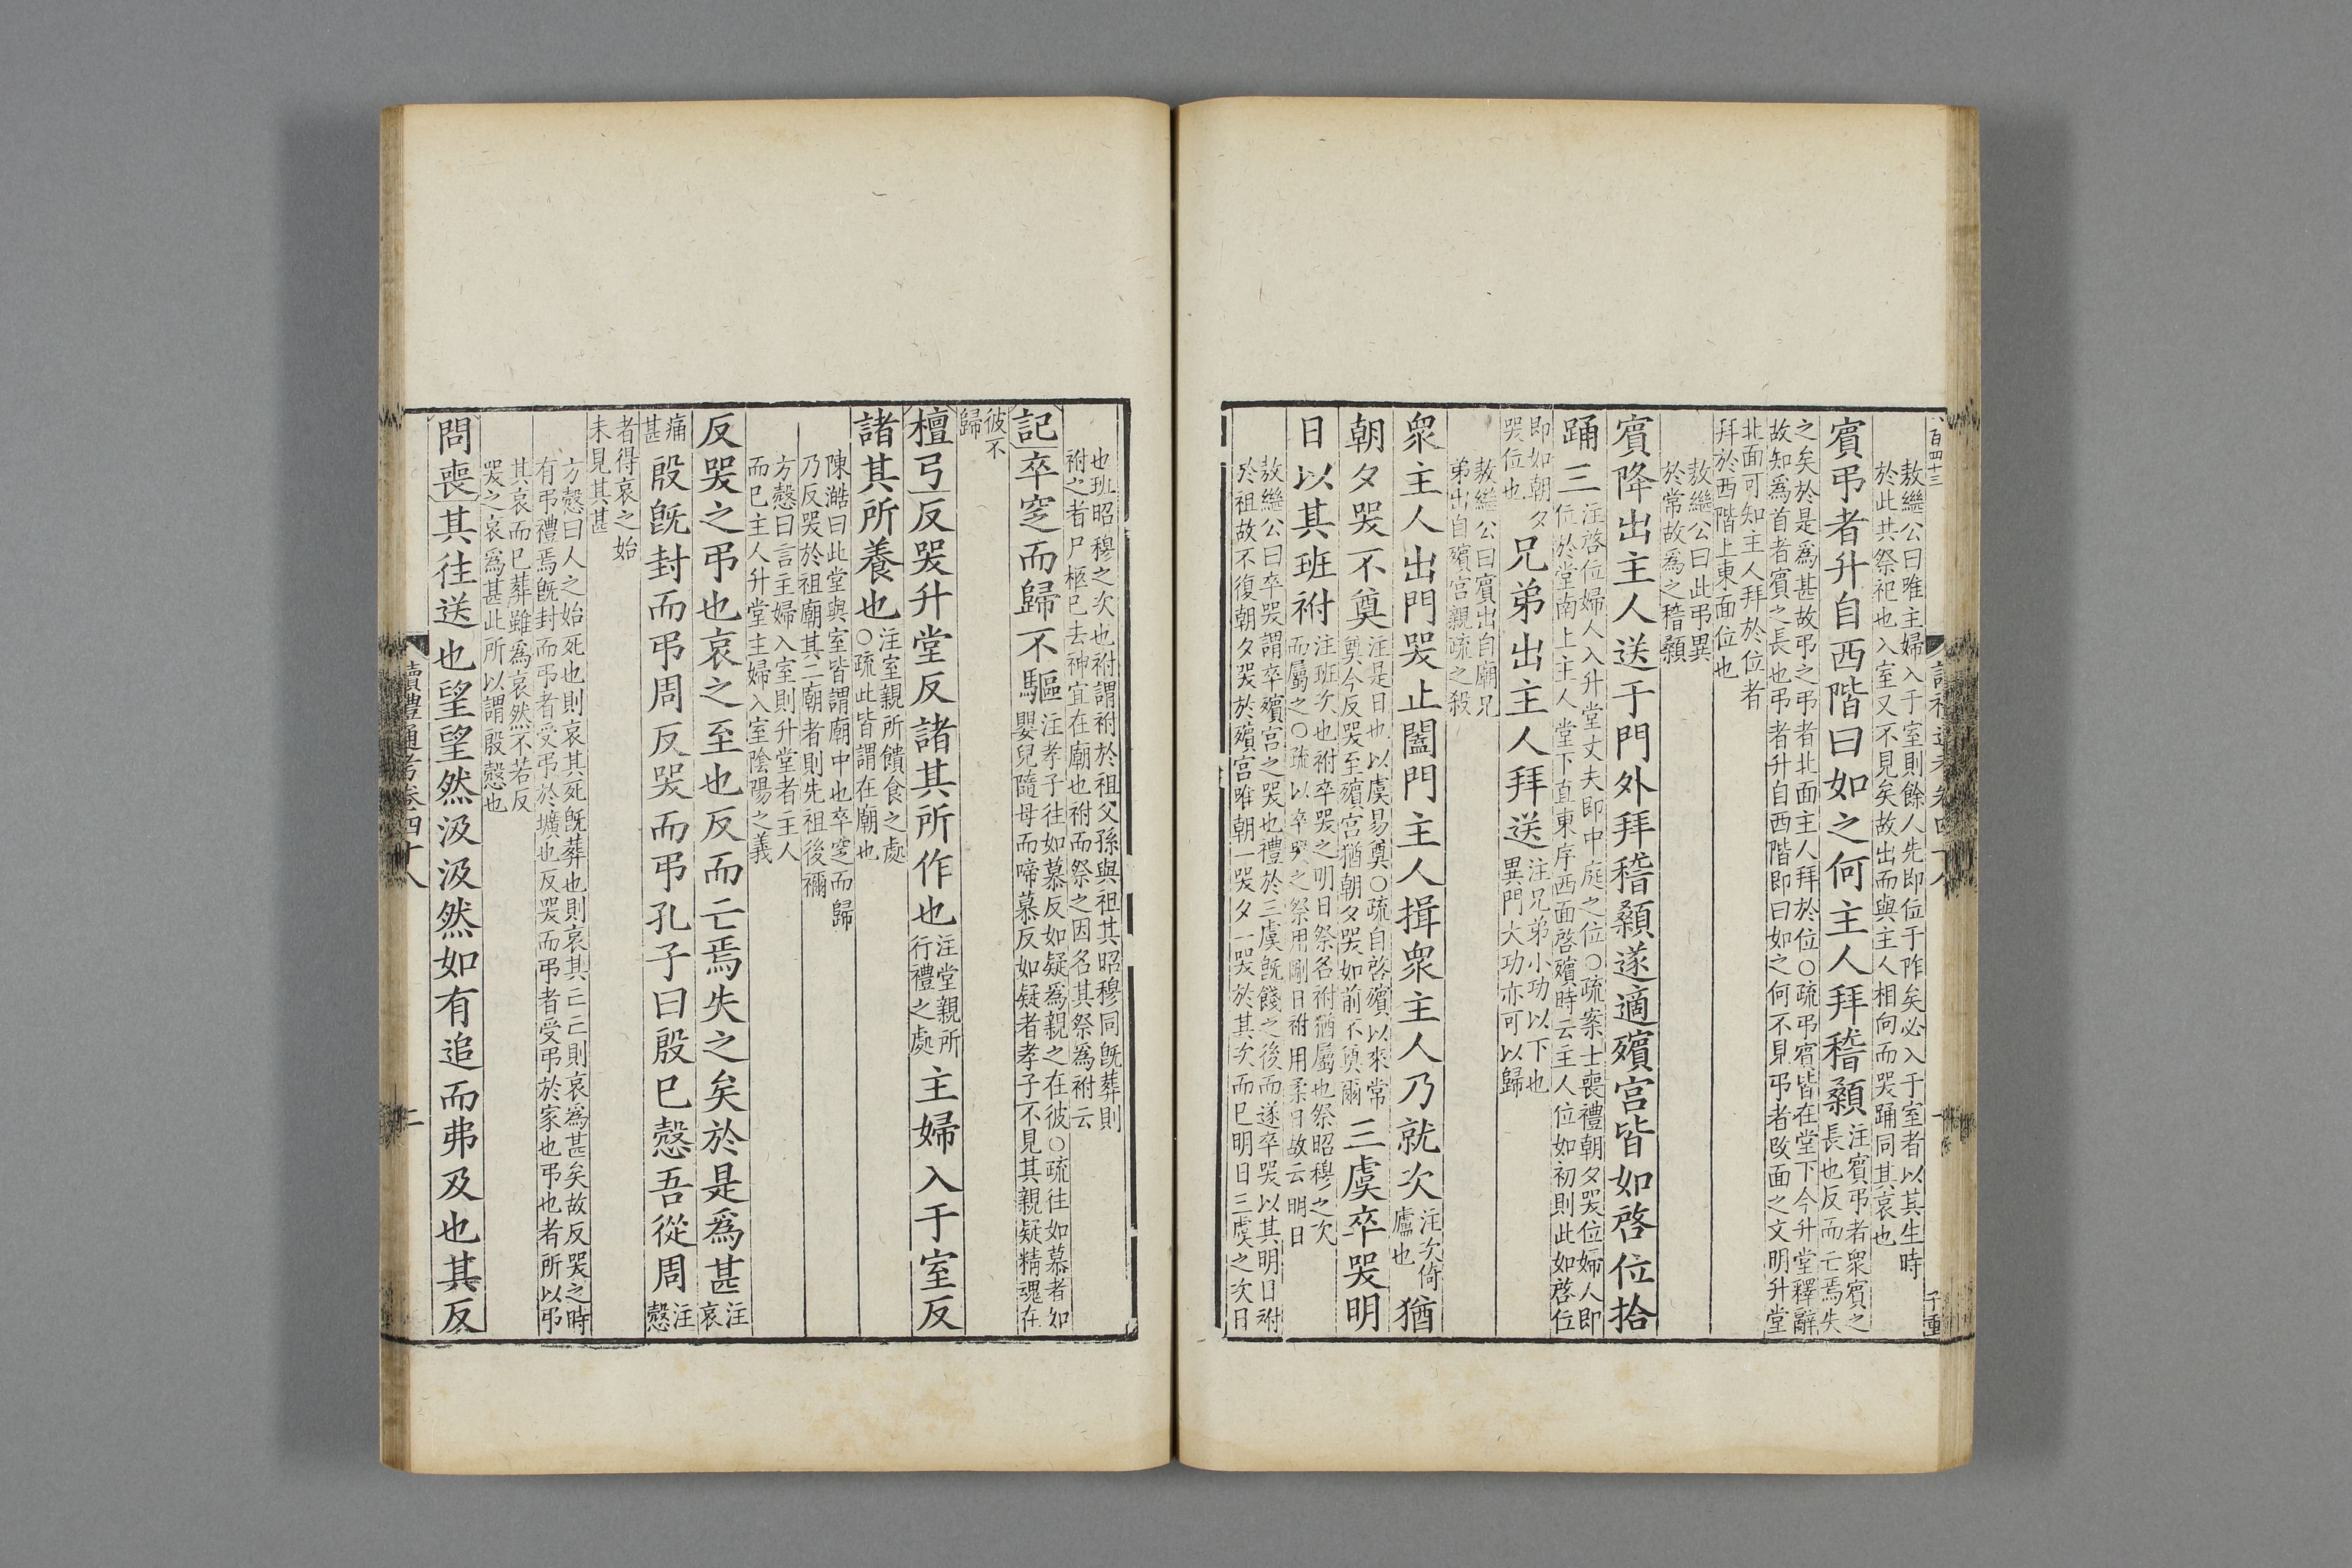 八百四十三
敖繼公曰唯主婦入于室則餘人先即位于阼矣必入于室者以其生時
於此共祭祀也入室又不見矣故出而與主人相向而哭踊同其哀也
賓弔者升自西階曰如之何主人拜稽顙注賓弔者衆賓之
長也反而亡焉失
之矣於是爲甚故弔之弔者北面主人拜於位○疏弔賓皆在堂下今升堂釋辭
故知爲首者賓之長也弔者升自西階即曰如之何不見弔者改面之文明升堂
北面可知主人拜於位者
拜於西階上東面位也
敖繼公曰此弔異
於常故爲之稽顙
賓降出主人送于門外拜稽顙遂適殯宮皆如啓位拾
踊三注啓位婦人入升堂丈夫即中庭之位○疏案士喪禮朝夕哭位婦人即
位於堂南上主人堂下直東序西面啓殯時云主人位如初則此如啓位
即如朝夕
哭位也兄弟出主人拜送注兄弟小功以下也
異門大功亦可以歸
敖繼公曰賓出自廟兄
弟出自殯宮親疏之殺
衆主人出門哭止闔門主人揖衆主人乃就次注次倚
廬也猶
朝夕哭不奠注是日也以虞易奠○疏自啓殯以來常
奠今反哭至殯宮猶朝夕哭如前不奠爾三虞卒哭明
日以其班祔注班次也祔卒哭之明日祭名祔猶屬也祭昭穆之次
而屬之○疏以卒哭之祭用剛日祔用柔日故云明日
敖繼公曰卒哭謂卒殯宮之哭也禮於三虞既餞之後而遂卒哭以其明日祔
於祖故不復朝夕哭於殯宮唯朝一哭夕一哭於其次而已明日三虞之次日
也班昭穆之次也祔謂祔於祖父孫與祖其昭穆同既葬則
祔之者尸柩已去神宜在廟也祔而祭之因名其祭爲祔云
記卒窆而歸不驅注孝子往如慕反如疑爲親之在彼○疏往如慕者如
嬰兒隨母而啼慕反如疑者孝子不見其親疑精魂在
彼不
歸
檀弓反哭升堂反諸其所作也注堂親所
行禮之處主婦入于室反
諸其所養也注室親所饋食之處
○疏此皆謂在廟也
陳澔曰此堂與室皆謂廟中也卒窆而歸
乃反哭於祖廟其二廟者則先祖後禰
方慤曰言主婦入室則升堂者主人
而已主人升堂主婦入室陰陽之義
反哭之弔也哀之至也反而亡焉失之矣於是爲甚注
哀
痛
甚殷既封而弔周反哭而弔孔子曰殷已慤吾從周注
慤
者得哀之始
未見其甚
方慤曰人之始死也則哀其死既葬也則哀其亡亡則哀爲甚矣故反哭之時
有弔禮焉既封而弔者受弔於壙也反哭而弔者受弔於家也弔也者所以弔
其哀而已葬雖爲哀然不若反
哭之哀爲甚此所以謂殷慤也
問喪其往送也望望然汲汲然如有追而弗及也其反
讀禮通考卷四十八
二